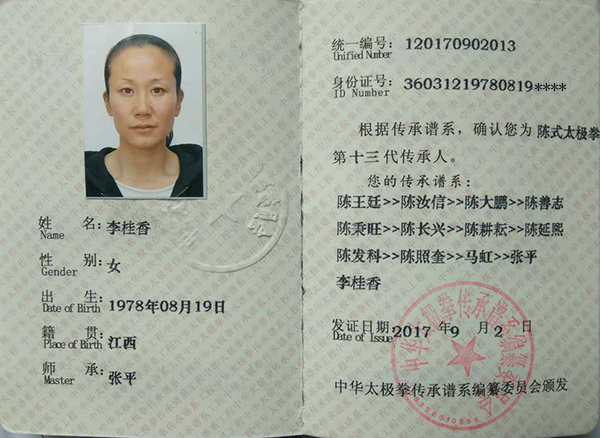 姓 名: 李桂香
Name
性 别: 女
Gender
出 生: 1978年08月19日
Date of Birth
籍 贯: 江西
Place of Birth
师 承: 张平
Master
统一编号: 120170902013
Unified Number
身份证号: 36031219780819****
ID Number
根据传承谱系，确认您为 陈式太极拳
第十三代传承人。
您的传承谱系:
陈王廷>>陈汝信>>陈大鹏>>陈善志
陈秉旺>>陈长兴>>陈耕耘>>陈延熙
陈发科>>陈照奎>>马虹>>张平
李桂香
发证日期: 2017 年 9 月 2 日
Date of Issue
中华太极拳传承谱系编纂委员会颁发
中华太极拳传承谱系编纂委员会